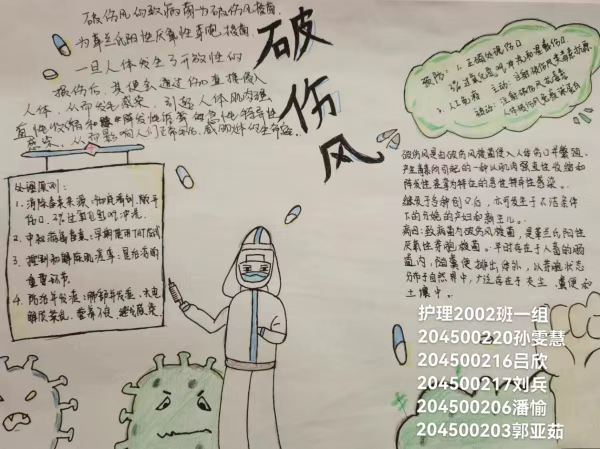 破伤风的致病菌为破伤风梭菌,
为革兰氏阳性厌氧性芽胞梭菌
一旦人体发生了开放性的
损伤后,其便会通过伤口直接侵入
人体,从而发生感染,引起人体肌肉强
直性收缩和阵发性痉挛
感染,从而影响人们正常生活,威胁
破伤风
预防:1.正确处理伤口
2.人工免疫
主动:注射破伤风类毒素
被动:注射破伤风抗毒素
破伤风是由破伤风梭菌侵入人体伤口并繁殖
产生毒素引起的一种以肌肉强直性收缩和
阵发性痉挛为特征的急性特异性感染。
继发于各种创伤后,亦可发生于不洁条件
下分娩的产妇和新生儿。
病因:致病菌为破伤风梭菌,是革兰氏阳性
厌氧性芽胞梭菌。平时存在于人畜的肠
道内,随粪便排出体外,以芽胞状态
分布于自然界中,广泛存在于灰尘、粪便和
土壤中。
处理原则:
1.清除毒素来源:彻底清创,敞开
伤口,3%过氧化氢冲洗
2.中和游离毒素:早期使用TAT
3.控制和解除肌痉挛:是治疗的
重要环节
4.防治并发症:
护理2002班一组
204500220孙雯慧
204500216吕欣
204500217刘兵
204500206潘愉
204500203郭亚茹